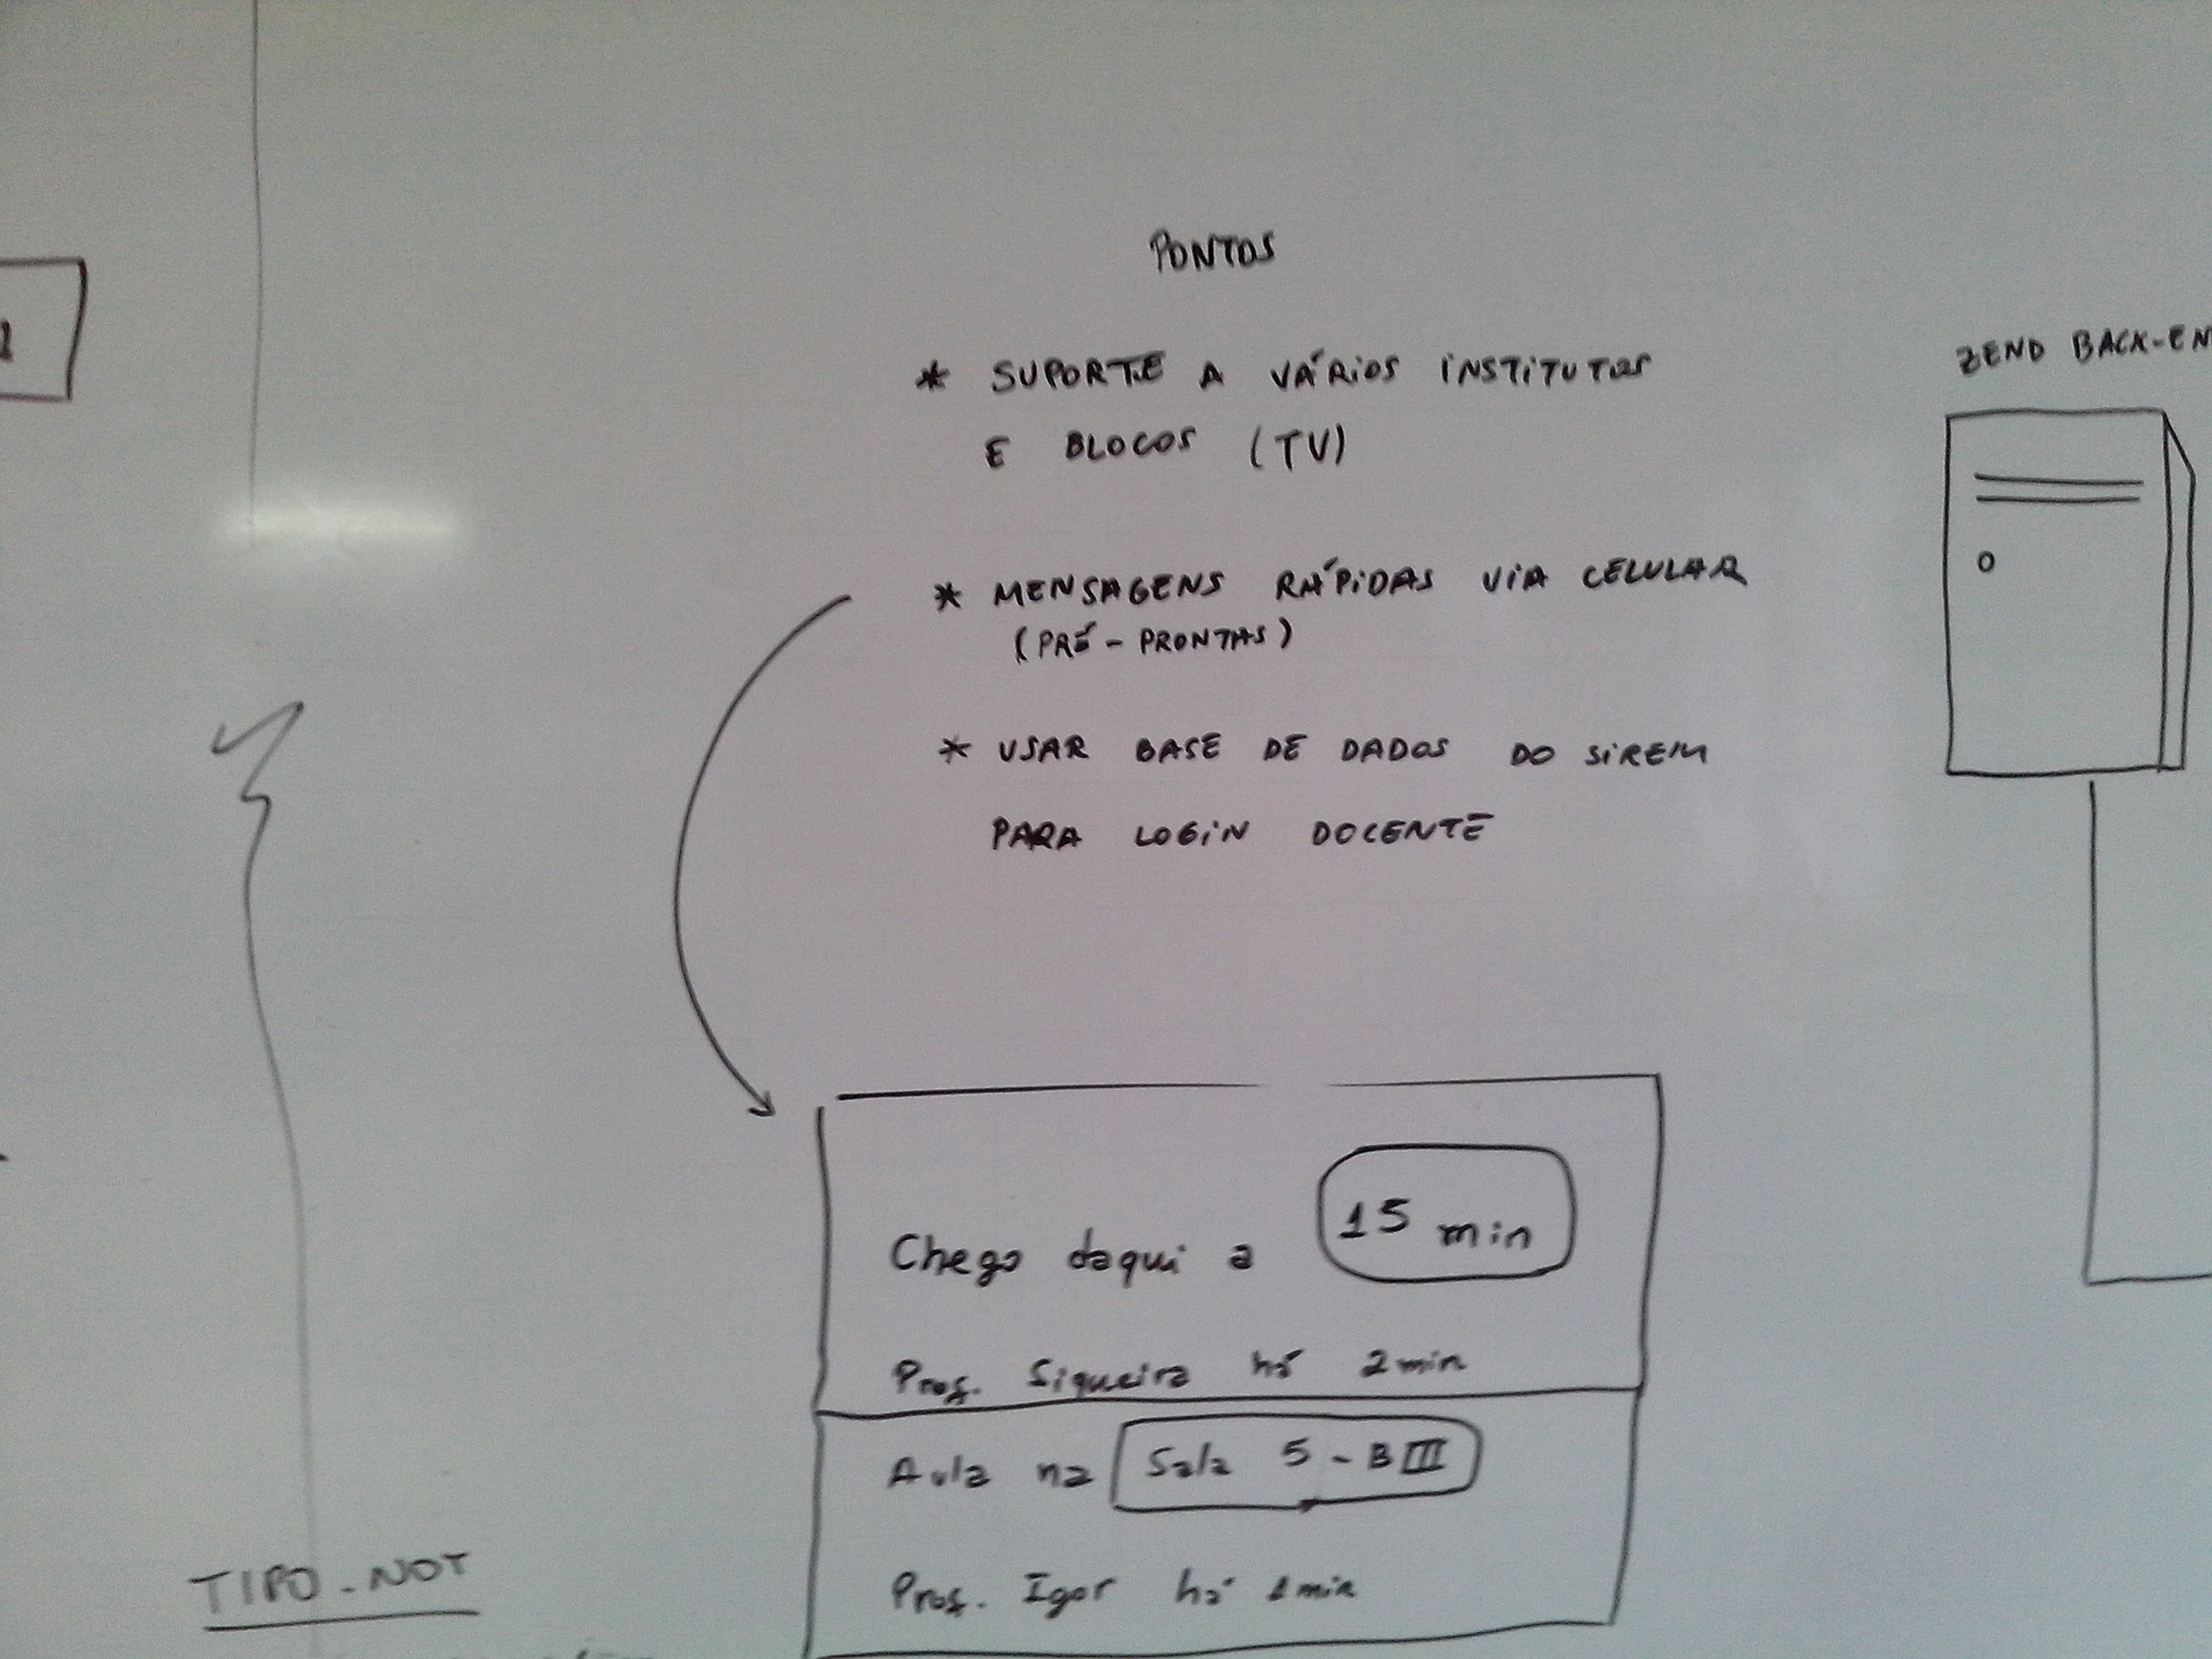 PONTOS
* SUPORTE A VÁRIOS INSTITUTOS
E BLOCOS (TV)
* MENSAGENS RÁPIDAS VIA CELULAR
(PRÉ-PRONTAS)
* USAR BASE DE DADOS DO SIREM
PARA LOGIN DOCENTE
Chego daqui a 15 min
Prof. Siqueira há 2 min
Aula na Sala 5 - B III
Prof. Igor há 1 min
ZEND BACK-EN
TIPO_NOT